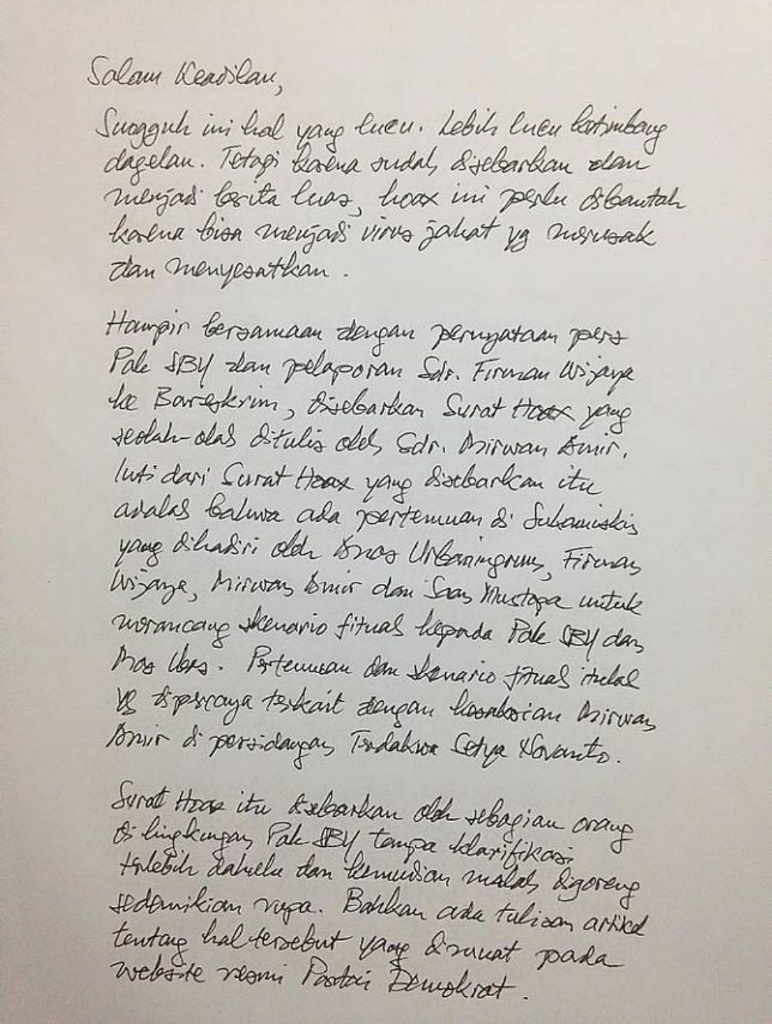 Salam Keadilan,
Sungguh ini hal yang lucu. Lebih lucu ketimbang
dagelan. Tetapi karena sudah disebarkan dan
menjadi berita luas, hoax ini perlu dibantah
karena bisa menjadi virus jahat yg merusak
dan menyesatkan.
Hampir bersamaan dengan pernyataan pers
Pak SBY dan pelaporan Sdr. Firman Wijaya
ke Bareskrim, disebarkan Surat Hoax yang
seolah-olah ditulis oleh Sdr. Mirwan Amir.
Inti dari Surat Hoax yang disebarkan itu
adalah bahwa ada pertemuan di Sukamiskin
yang dihadiri oleh Anas Urbaningrum, Firman
Wijaya, Mirwan Amir dan Saan Mustopa untuk
merancang skenario fitnah kepada Pak SBY dan
Mas Ibas. Pertemuan dan skenario fitnah itulah
yg dipercaya terkait dengan kesaksian Mirwan
Amir di persidangan Terdakwa Setya Novanto.
Surat Hoax itu disebarkan oleh sebagian orang
di lingkungan Pak SBY tanpa klarifikasi
terlebih dahulu dan kemudian malah digoreng
sedemikian rupa. Bahkan ada tulisan artikel
tentang hal tersebut yang dimuat pada
website resmi Partai Demokrat.